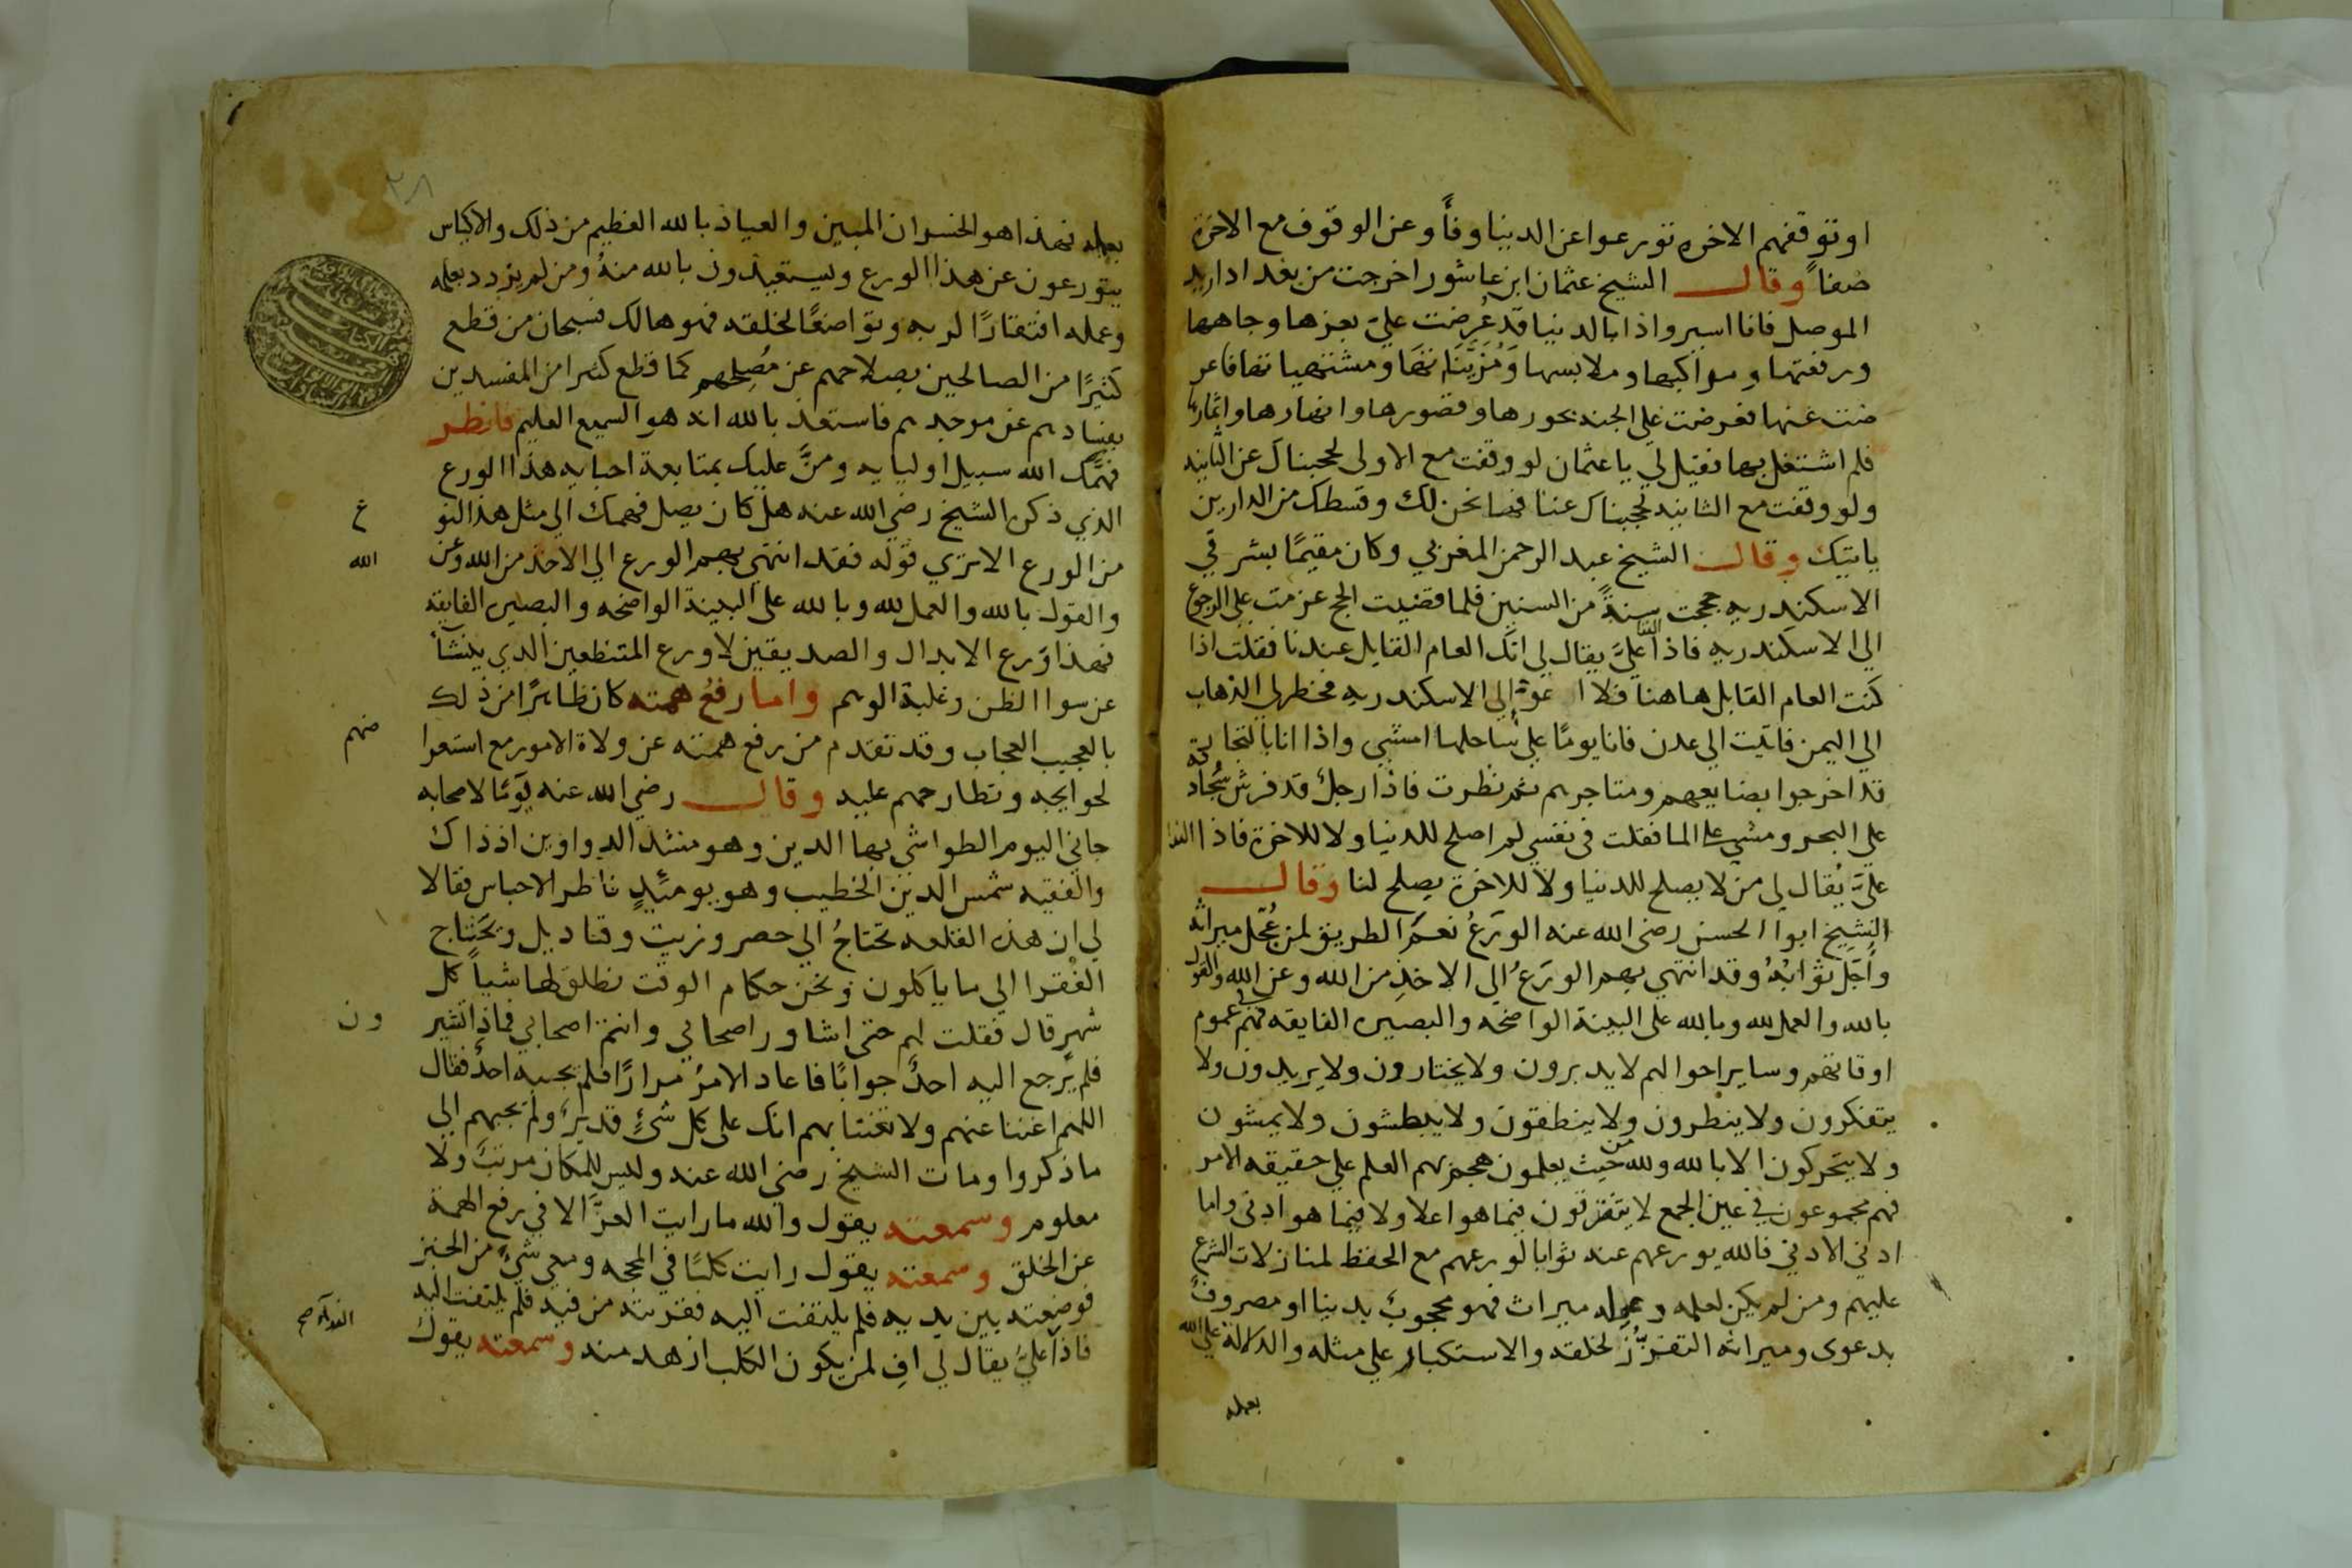 او توقفهم الاخره تورعوا عن الدنيا وفأ وعن الوقوف مع الاخرة
صفاً وقال الشيخ عثمان ابن عاشورا خرجت من بغداد اريد
الموصل فانا اسير واذا بالدنيا قد عُرِضت عليّ بعزها وجاهها
ورفعتها ومواكبها وملابسها وَمُزَيَّناتها ومشتهياتها فاعر
ضت عنها فعرضت علي الجنه بحورها وقصورها وانهارها واثمارها
فلم اشتغل بها فقيل لي يا عثمان لو وقفت مع الاولى لحجبناك عن الثانيه
ولو وقفت مع الثانيه لحجبناك عنا فها نحن لك وقسطك من الدارين
ياتيك وقال الشيخ عبد الرحمن المغربي وكان مقيمًا بشرقي
الاسكندريه حججت سنةً من السنين فلما قضيت الحج عزمت على الرجوع
الى الاسكندريه فاذا النداء عليَّ يقال لي انك العام القابل عندنا فقلت اذا
كنت العام القابل هاهنا فلا اعود الى الاسكندريه فخطر لي الذهاب
الي اليمن فاتيت الي عدن فانا يومًا على ساحلها امشي واذا انا بالتجار
قد اخرجوا بضايعهم ومتاجرهم ثم نظرت فاذا رجل قد فرش سُجادة
على البحر ومشي على الما فقلت في نفسي لم اصلح للدنيا ولا للاخرة فاذا الندا
عليَّ يُقال لي من لا يصلح للدنيا ولا للاخرة يصلح لنا وقال
الشيخ ابوا الحسن رضى الله عنه الورَعُ نعمَ الطريق لمن عُجّل ميراثه
وأُجّل ثوابُهُ وقد انتهي بهم الورَعُ الى الاخذِ من الله وعن الله والقول
بالله والعمل لله وبالله على البينة الواضحه والبصيره الفايقه فهم في عموم
اوقاتهم وساير احوالهم لا يدبرون ولا يختارون ولا يريدون ولا
يتفكرون ولا ينظرون ولا ينطقون ولا يبطشون ولا يمشون
ولا يتحركون الا بالله ولله من حيث يعلمون هجم بهم العلم علي حقيقه الامر
فهم مجموعون في عين الجمع لا يتفرقون فيما هو اعلا ولا فيما هو ادنى واما
ادني الادني فالله يورعهم عنه ثوابا لورعهم مع الحفظ لمنازلات الشرع
عليهم ومن لم يكن لعلمه وعمله ميراث فهو محجوبٌ بدنيا او مصروفٌ
بدعوى وميراثه التعززُ لخلقه والاستكبار علي مثله والدلالة على الله
بعمله
٢٨
بعمله فهذا هو الخسران المبين والعياذ بالله العظيم من ذلك والاكياس
يتورعون عن هذا الورع ويستعيذون بالله منهُ ومن لم يزدد بعلمه
وعمله افتقارًا لربه وتواضعًا لخلقه فهو هالك فسبحان من قطع
كثيرًا من الصالحين بصلاحهم عن مُصلِحهم كما قطع كثيرا من المفسدين
بفسادهم عن موجدهم فاستعذ بالله انه هو السميع العليم فانظر
فهَّمك الله سبيل اوليايه ومنَّ عليك بمتابعة احبايه هذا الورع
الذي ذكره الشيخ رضي الله عنه هل كان يصل فهمك الي مثل هذا النو
ع
من الورع الا تري قوله فقد انتهي بهم الورع الي الاخذ من الله وعن
الله
والقول بالله والعمل لله وبالله على البينة الواضحه والبصيره الفايقه
فهذا ورع الابدال والصديقين لا ورع المتنطعين الذي ينشأ
عن سوا الظن وغلبة الوهم واما رفعُ همته كان ظاهرًا من ذلك
بالعجيب العجاب وقد تقدم من رفع همته عن ولاة الامور مع استعرا
ضهم
لحوايجه وتطارحهم عليه وقال رضي الله عنه يومًا لاصحابه
جاني اليوم الطواشي بها الدين وهو مشد الدواوين اذ ذاك
والفقيه شمس الدين الخطيب وهو يوميئذٍ ناظر الاحباس فقالا
لي ان هذه القلعه تحتاجُ الي حصر وزيت وقناديل ويحتاج
الفقرا الي ما ياكلون ونحن حكام الوقت نطلق لها شياً كل
شهر قال فقلت لهم حتى اشاور اصحابي وانتم اصحابي فماذا تشير
ون
فلم يرجع اليه احدٌ جوابًا فاعاد الامرُ مرارًا فلم يجبه احدٌ فقال
اللهم اغننا عنهم ولا تغننا بهم انك على كل شئٍ قدير ولم يجبهم الي
ما ذكروا ومات الشيخ رضي الله عنه وليس للمكان مرتبٌ ولا
معلوم وسمعته يقول والله ما رايت العزَّ الا في رفع الهمة
عن الخلق وسمعته يقول رايت كلبًا في المحجه ومعي شئٌ من الخبز
فوضعته بين يديه فلم يلتفت اليه فقربته من فيه فلم يلتفت اليه
فاذا عليَّ يقال لي افِ لمن يكون الكلب ازهد منه وسمعته يقول
النداء صح